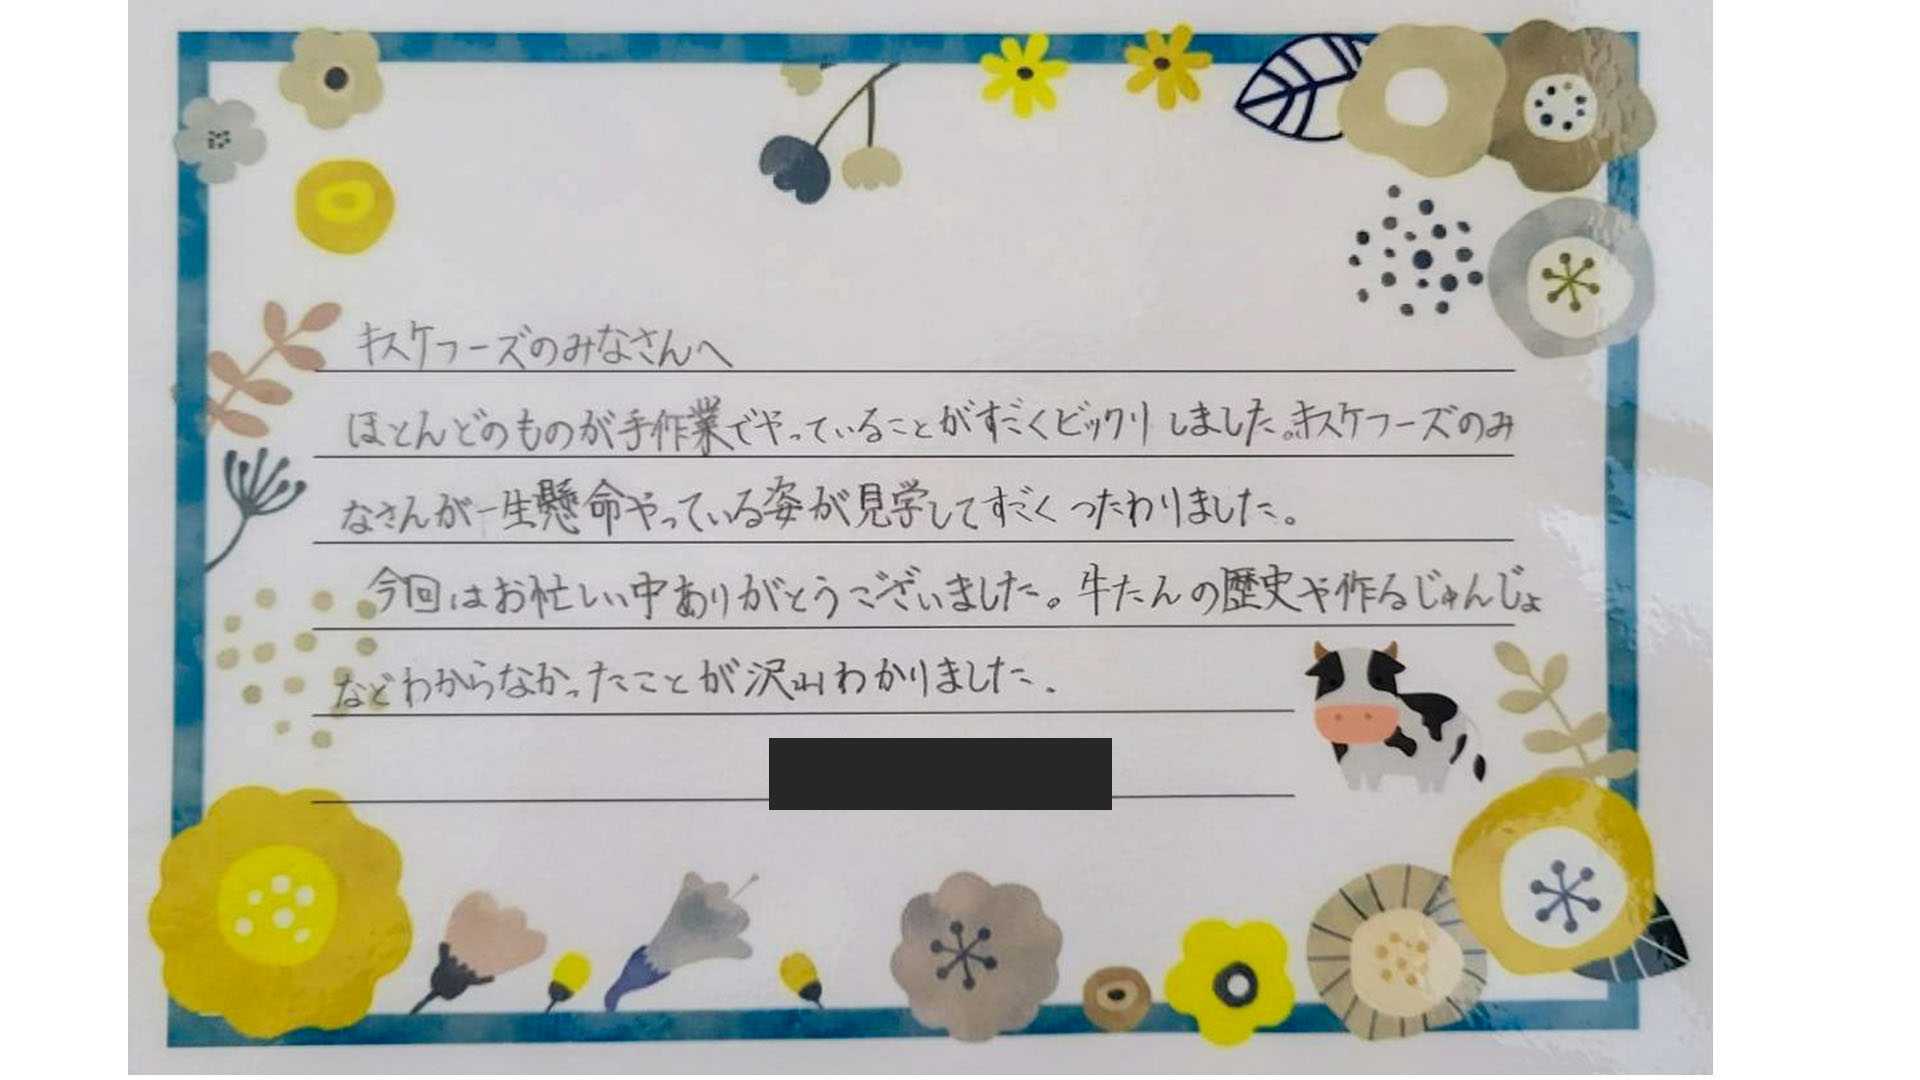 キスケフーズのみなさんへ
ほとんどのものが手作業でやっていることがすごくビックリしました。キスケフーズのみ
なさんが一生懸命やっている姿が見学してすごくつたわりました。
今回はお忙しい中ありがとうございました。牛たんの歴史や作るじゅんじょ
などわからなかったことが沢山わかりました.